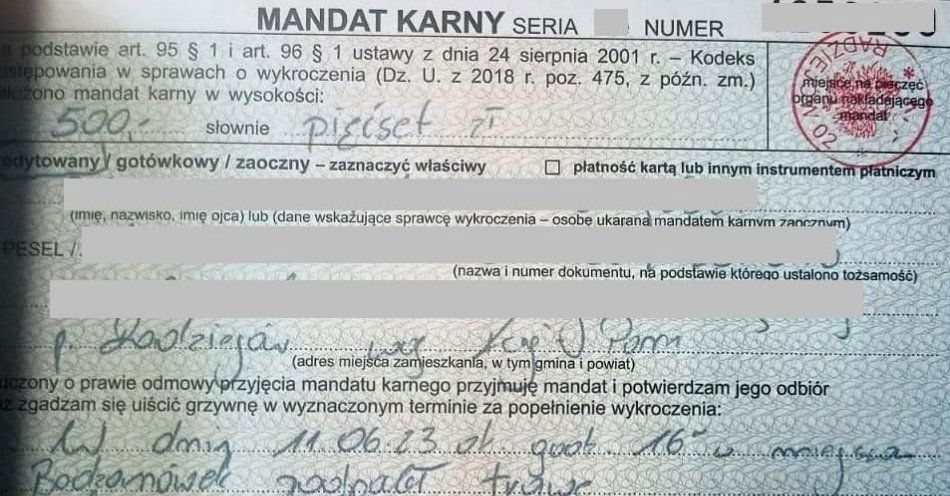 MANDAT KARNY SERIA NUMER
podstawie art. 95 § 1 i art. 96 § 1 ustawy z dnia 24 sierpnia 2001 r. – Kodeks
ostępowania w sprawach o wykroczenia (Dz. U. z 2018 r. poz. 475, z późn. zm.)
ałożono mandat karny w wysokości:
miejsce na pieczęć
organu nakładającego
mandat
500, słownie pięćset zł
edytowany / gotówkowy / zaoczny – zaznaczyć właściwy
płatność kartą lub innym instrumentem płatniczym
(imię, nazwisko, imię ojca) lub (dane wskazujące sprawcę wykroczenia – osobę ukaraną mandatem karnym zaocznym)
PESEL /
(nazwa i numer dokumentu, na podstawie którego ustalono tożsamość)
p. Radziejów woj. Kuj Pom
(adres miejsca zamieszkania, w tym gmina i powiat)
uczony o prawie odmowy przyjęcia mandatu karnego przyjmuję mandat i potwierdzam jego odbiór
z zgadzam się uiścić grzywnę w wyznaczonym terminie za popełnienie wykroczenia:
W dniu 11.06.23 ok godz. 16 w miejsc
Bodzanówek podpalał trawę